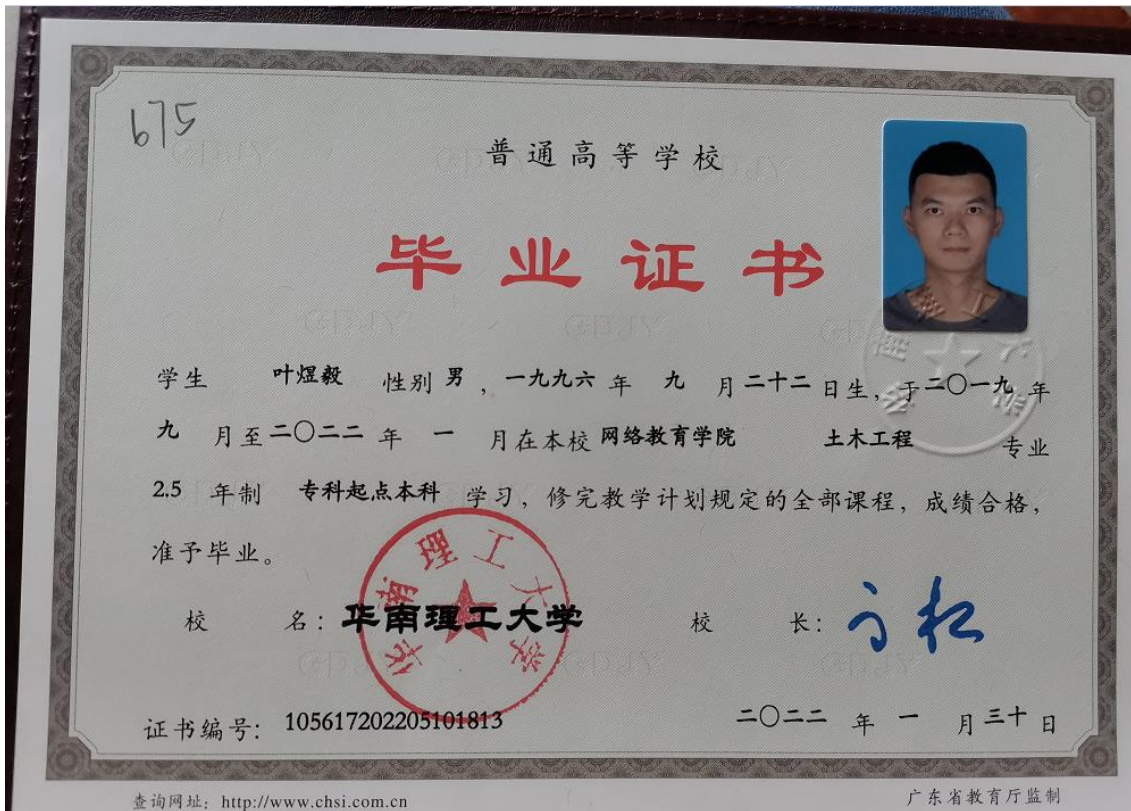 675
普通高等学校
毕业证书
学生 叶煜毅 性别 男 ，一九九六 年 九 月 二十二 日生，于 二〇一九 年
九 月至 二〇二二 年 一 月在本校 网络教育学院 土木工程 专业
2.5 年制 专科起点本科 学习，修完教学计划规定的全部课程，成绩合格，
准予毕业。
华南理工大学
校 名：华南理工大学 校 长：
证书编号：105617202205101813 二〇二二 年 一 月 三十 日
查询网址：http://www.chsi.com.cn 广东省教育厅监制